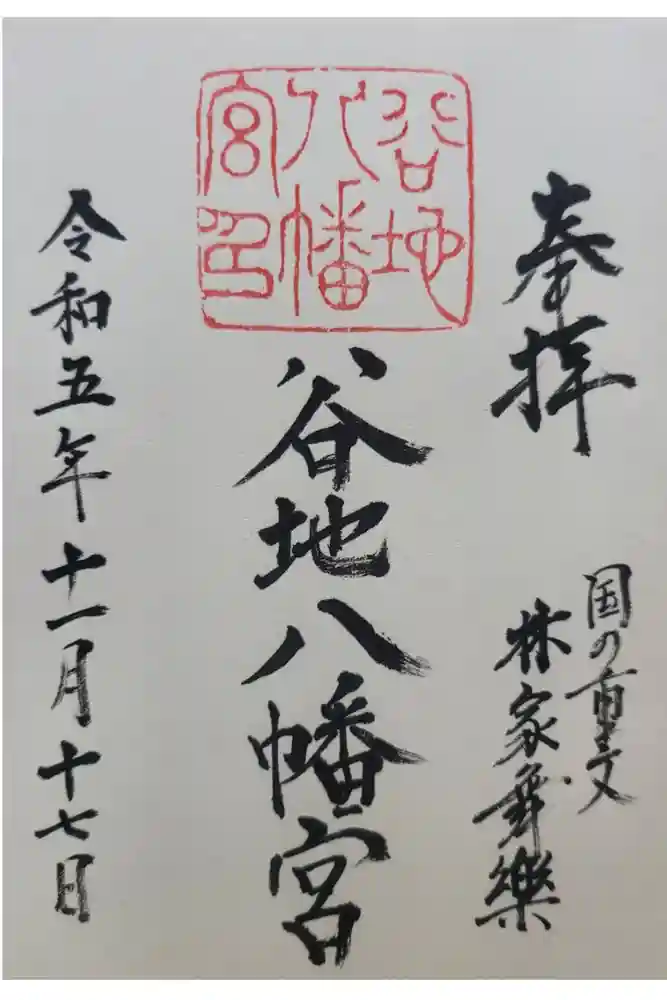 奉拝
国の重文
林家舞樂
谷地八幡宮印
谷地八幡宮
令和五年十一月十七日